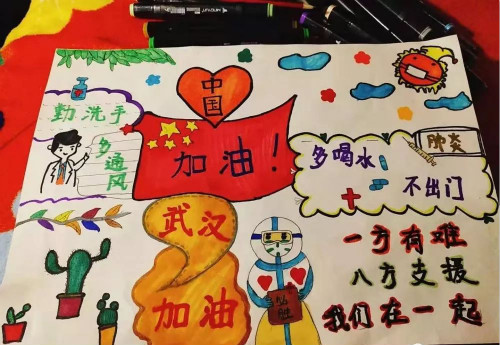 中国
勤洗手
多通风
加油！
多喝水
不出门
肺炎
武汉
加油
一方有难
八方支援
我们在一起